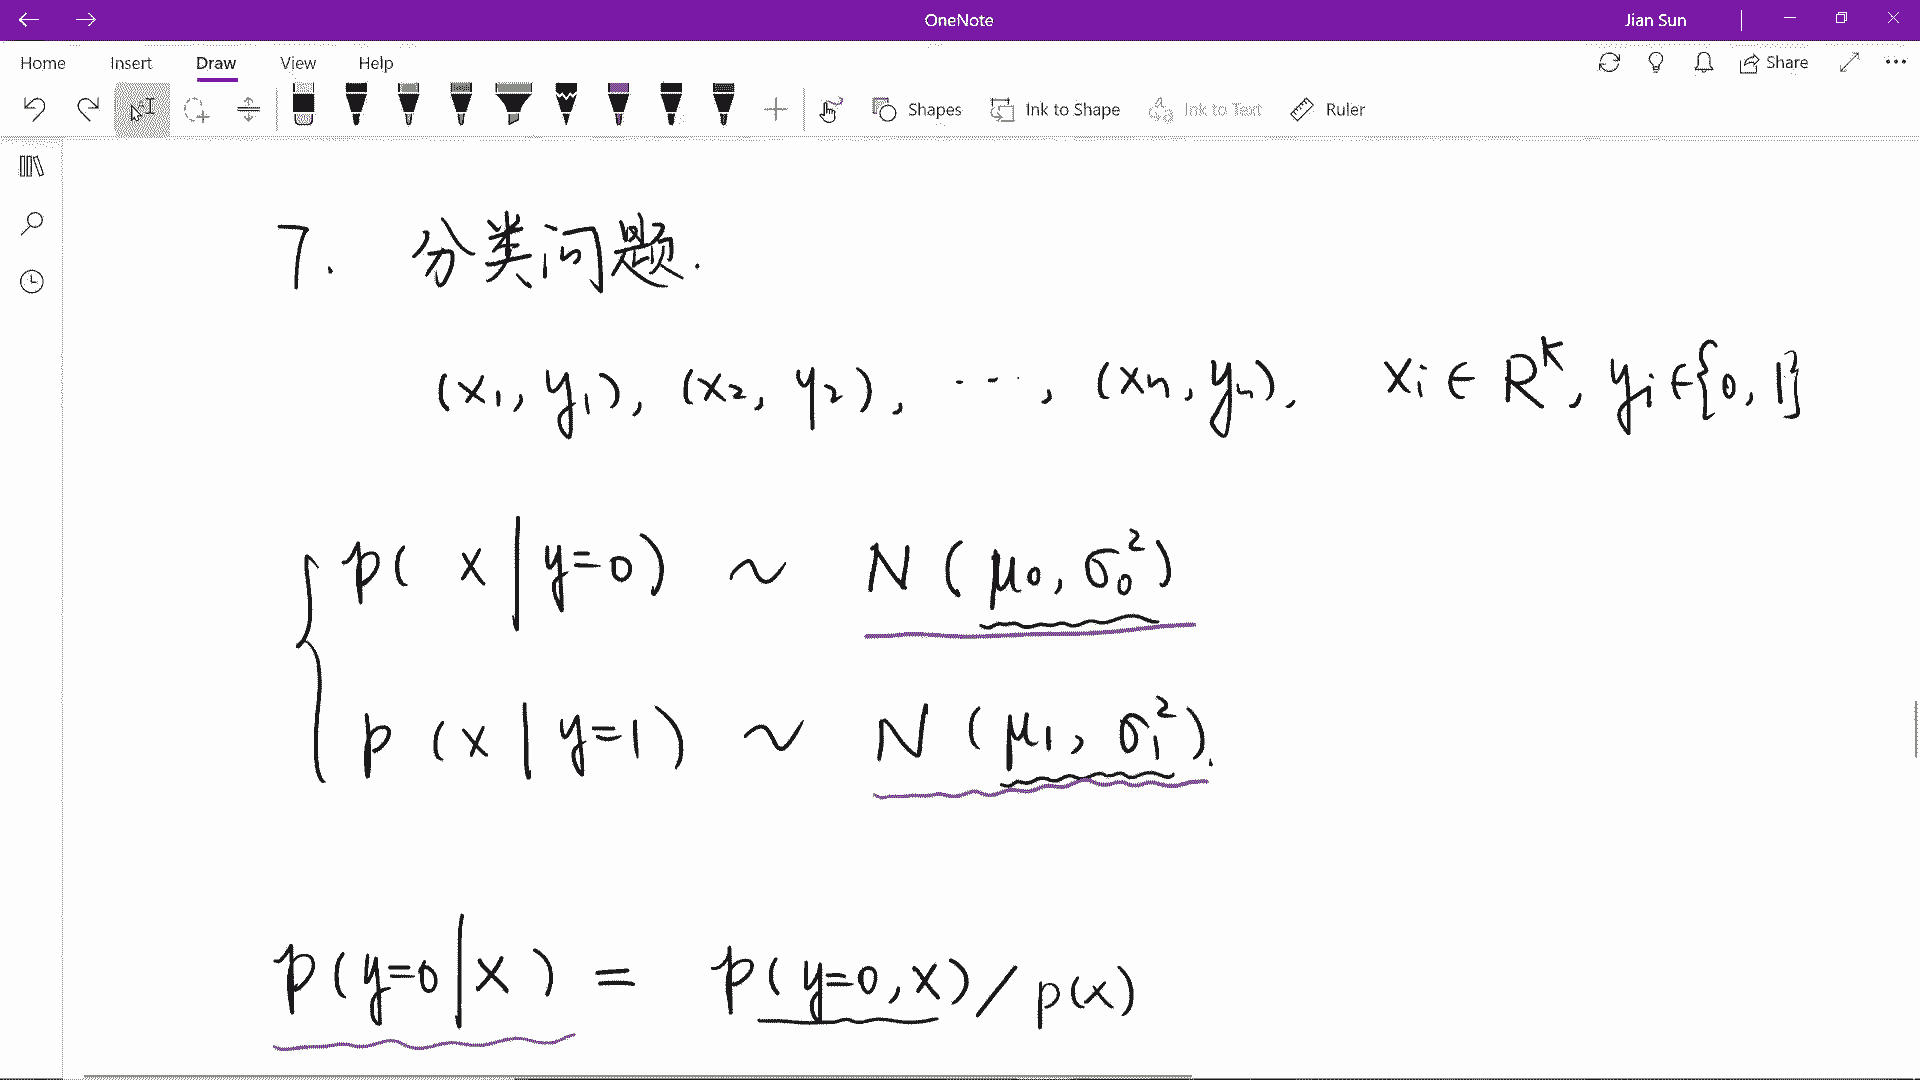 OneNote
Jian Sun
Home Insert Draw View Help
Share
Shapes Ink to Shape Ink to Text Ruler
7. 分类问题.
(x₁, y₁), (x₂, y₂), ⋯, (xₙ, yₙ), xᵢ ∈ Rᴷ, yᵢ ∈ {0, 1}
p( x | y=0 ) ~ N ( μ₀, σ₀² )
p ( x | y=1 ) ~ N ( μ₁, σ₁² ).
p ( y=0 | x ) = p( y=0, x ) / p(x)